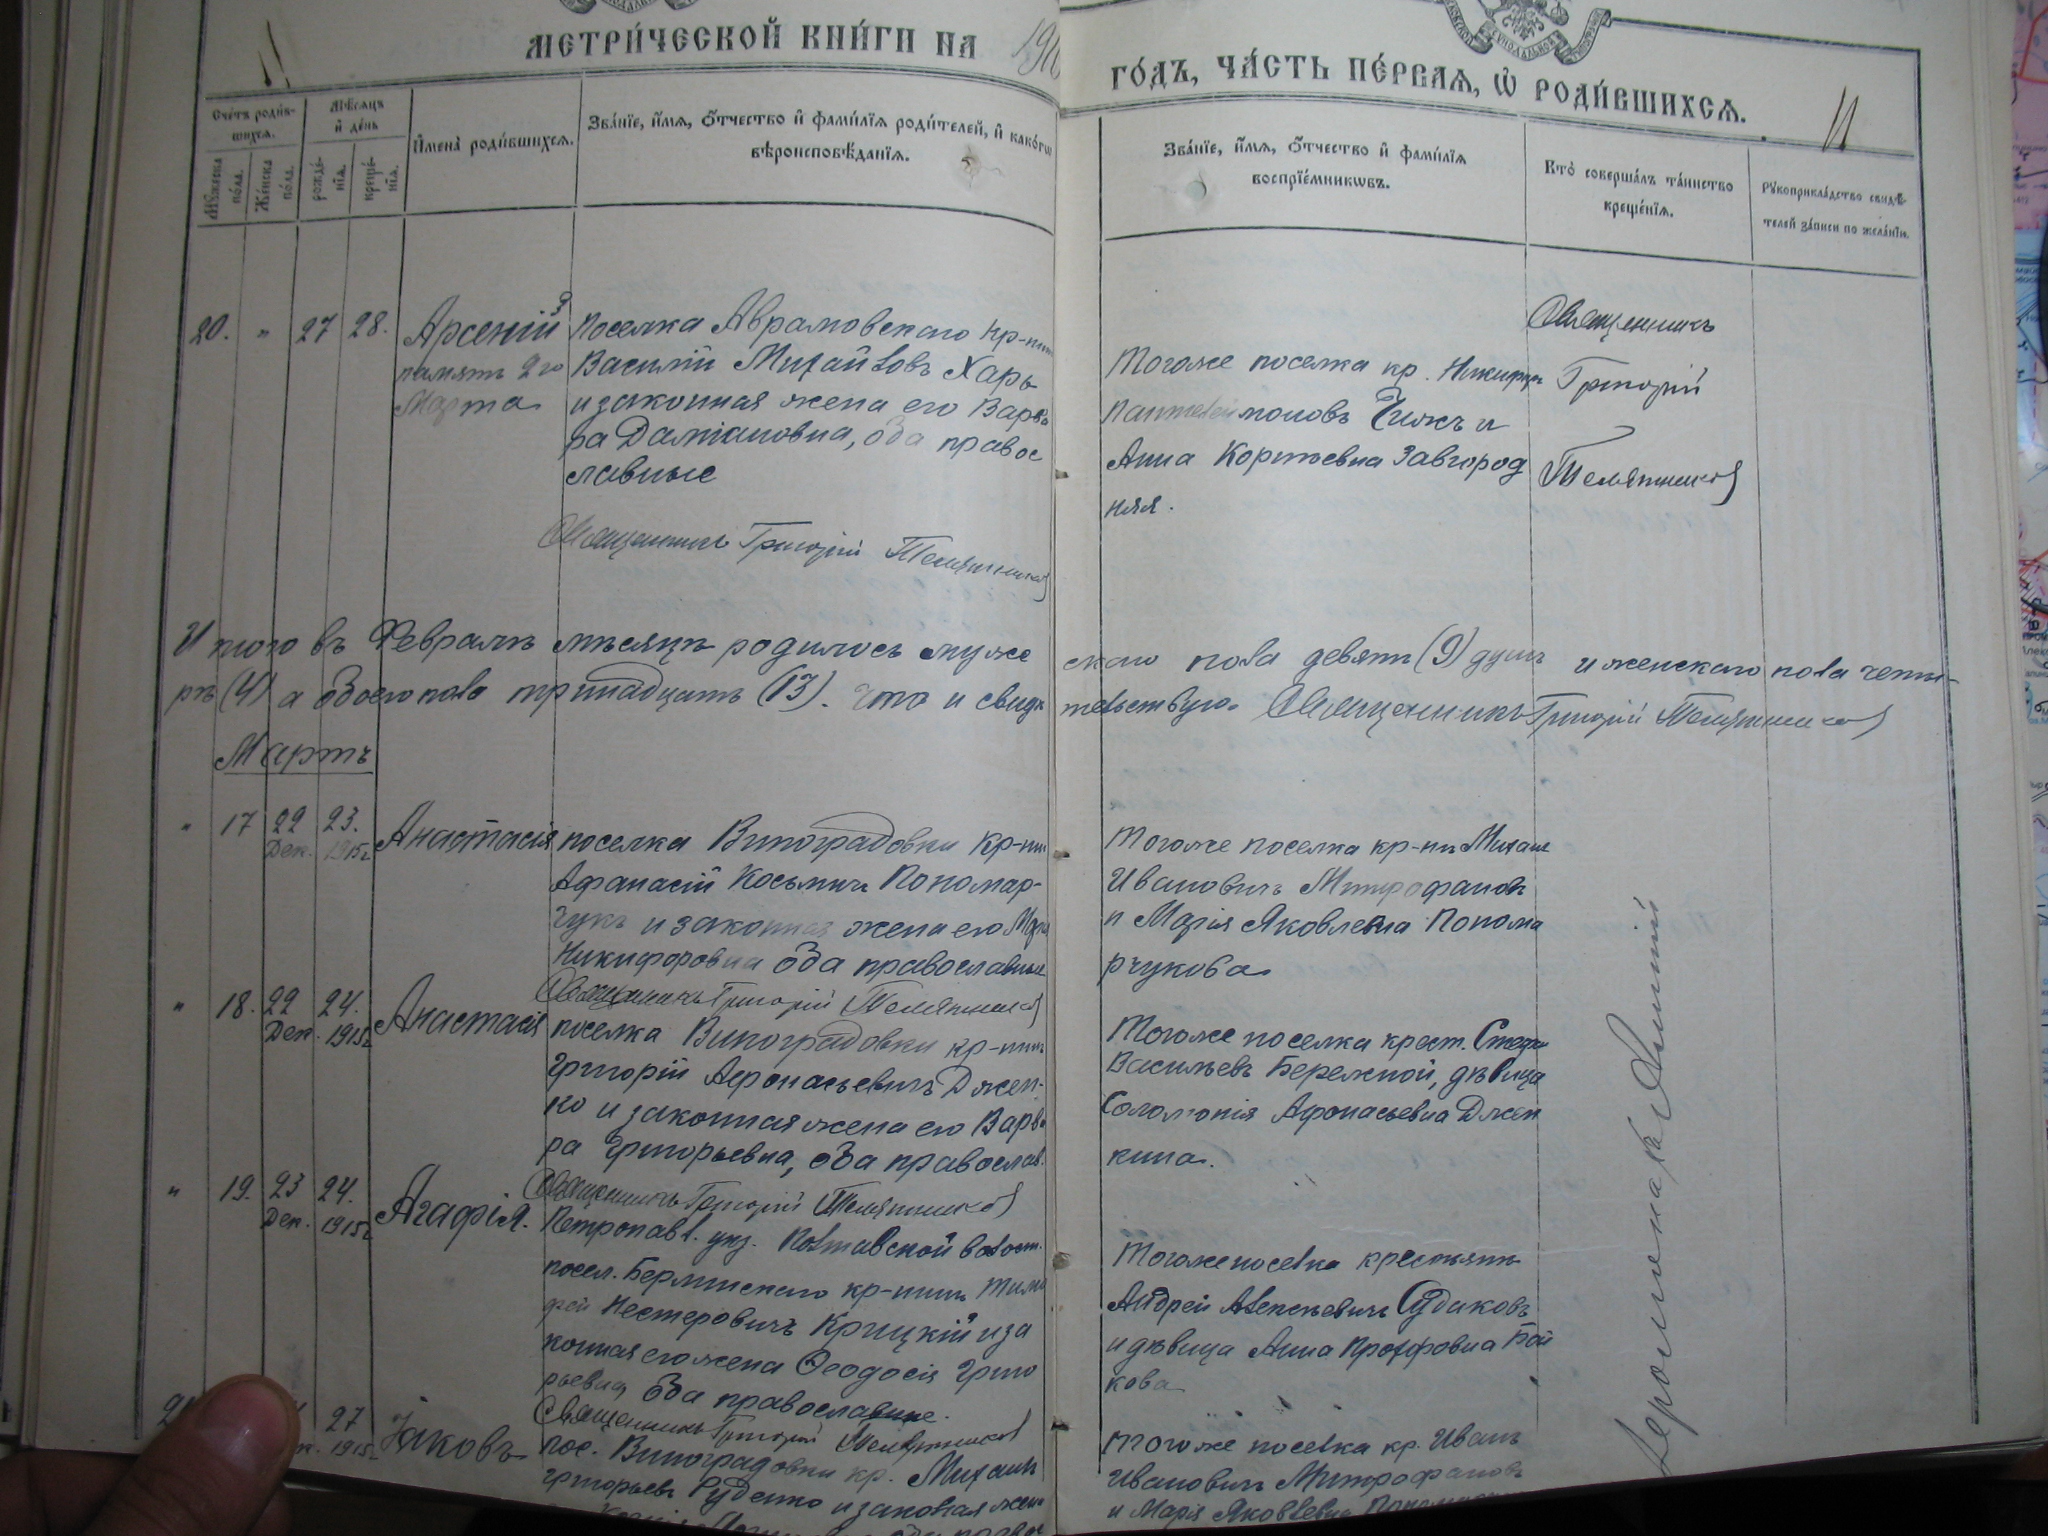 МЕТРИ́ЧЕСКОЙ КНИ́ГИ НА
ГО́ДЪ, ЧА́СТЬ ПЕ́РВАѦ, Ѽ РОДИ́ВШИХСѦ.
11
11
Сче́тъ роди́в-
шихсѧ.
Мѣ́сѧцъ
и҆ де́нь
Мꙋ́жеска по́ла.
Же́нска по́ла.
рожде́-
нїѧ.
креще́-
нїѧ.
И҆мена̀ роди́вшихсѧ.
Зва́нїе, и҆́мѧ, ѻ҆́тчество и҆ фами́лїѧ роди́телей, и҆ како́гѡ
вѣроисповѣ́данїѧ.
Зва́нїе, и҆́мѧ, ѻ҆́тчество и҆ фами́лїѧ
воспрїе́мникѡвъ.
Кто̀ соверша́лъ та́инство
креще́нїѧ.
Рꙋкоприкла́дство свидѣ́-
телей за́писи по жела́нїю.
20. " 27 28. Арсеній
памят 2го
Марта
поселка Аврамовскаго кр-нин
Василій Михайловъ Харь
и законная жена его Варва
ра Даміановна, оба правос
лавные
Священникъ Григорій Телятников
Тогоже поселка кр. Никифор
Пантелеймоновъ Чижъ и
Анна Корнѣевна Завгород
няя.
Священникъ
Григорій
Телятников
Итого въ Февралѣ мѣсяцѣ родилось муже
скаго пола девять (9) душъ и женскаго пола четы-
рѣ (4) а обоего пола тринадцать (13). Что и свидѣ
тельствую. Священникъ Григорій Телятников
Мартъ
" 17 22 23.
Дек. 1915г
Анастасія
поселка Виноградовки кр-нин
Афанасій Косьмичъ Пономар-
чукъ и законная жена его Марія
Никифоровна оба православные
Священникъ Григорій Телятников
Тогоже поселка кр-нъ Михаил
Ивановичъ Митрофановъ
и Марія Яковлевна Понома
рчукова
" 18. 22 24.
Дек. 1915г
Анастасія
поселка Виноградовки кр-нинъ
Григорій Афонасьевичъ Джен-
ко и законная жена его Варва
ра Григорьевна, оба православ.
Священникъ Григорій Телятников
Тогоже поселка крест. Стефан
Васильевъ Бережной, дѣвица
Соломонія Афонасьевна Джен
кина.
" 19. 23 24.
Дек. 1915г
Агафія.
Петропавл. уѣз. Полтавской волост.
посел. кр-нинъ Тимо
фей Нестеровичъ Крицкій и за
конная его жена Ѳеодосія Григо
рьевна, оба православные.
Священникъ Григорій Телятников
Тогоже поселка крестьянъ
Андрей Алексѣевичъ Судаковъ
и дѣвица Анна Прохоровна Бой
кова
27
1915г
Іаковъ
пос. Виноградовки кр. Михаилъ
Григорьевъ Руденко и законая жена
Тогоже поселка кр. Иванъ
Ивановичъ Митрофановъ
и Марія Яковлевна